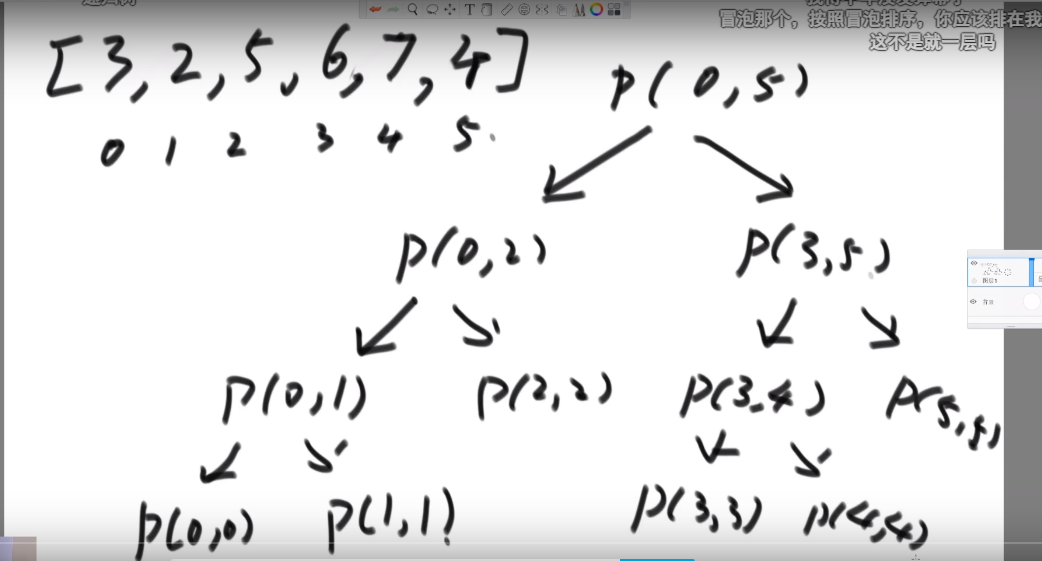 冒泡那个，按照冒泡排序，你应该排在我
这不是就一层吗
[3, 2, 5, 6, 7, 4]
0 1 2 3 4 5
p(0,5)
p(0,2) p(3,5)
p(0,1) p(2,2) p(3,4) p(5,5)
p(0,0) p(1,1) p(3,3) p(4,4)
图层1